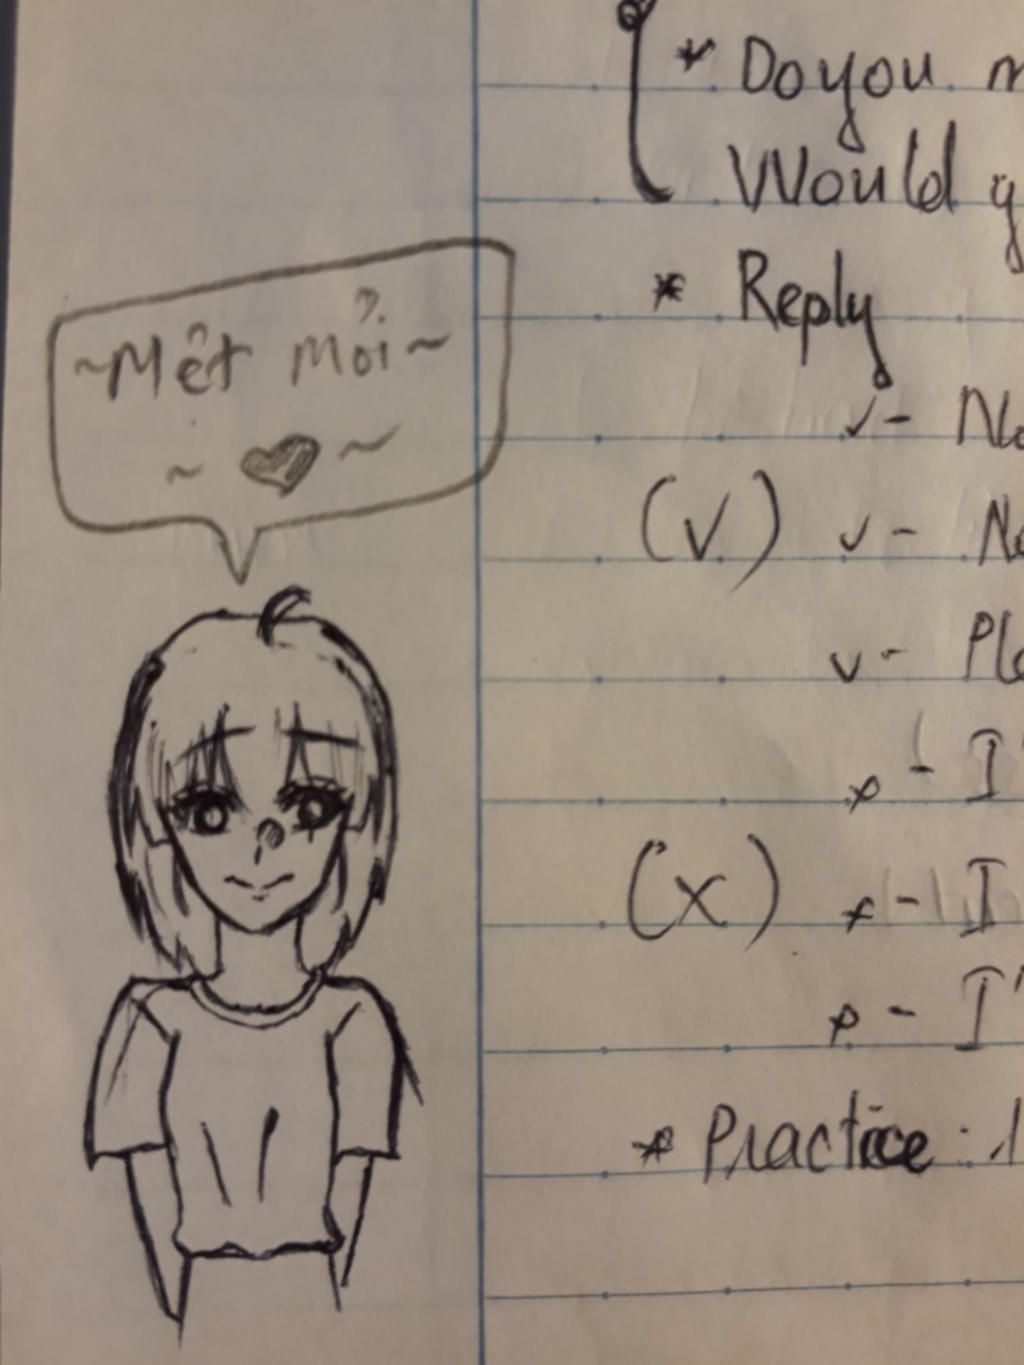 ~Mệt mỏi~
~ ♥ ~
* Do you
Would
* Reply
✓-
(✓) ✓-
✓-
x - I'
(x) x - I
x - I'
* Practice :